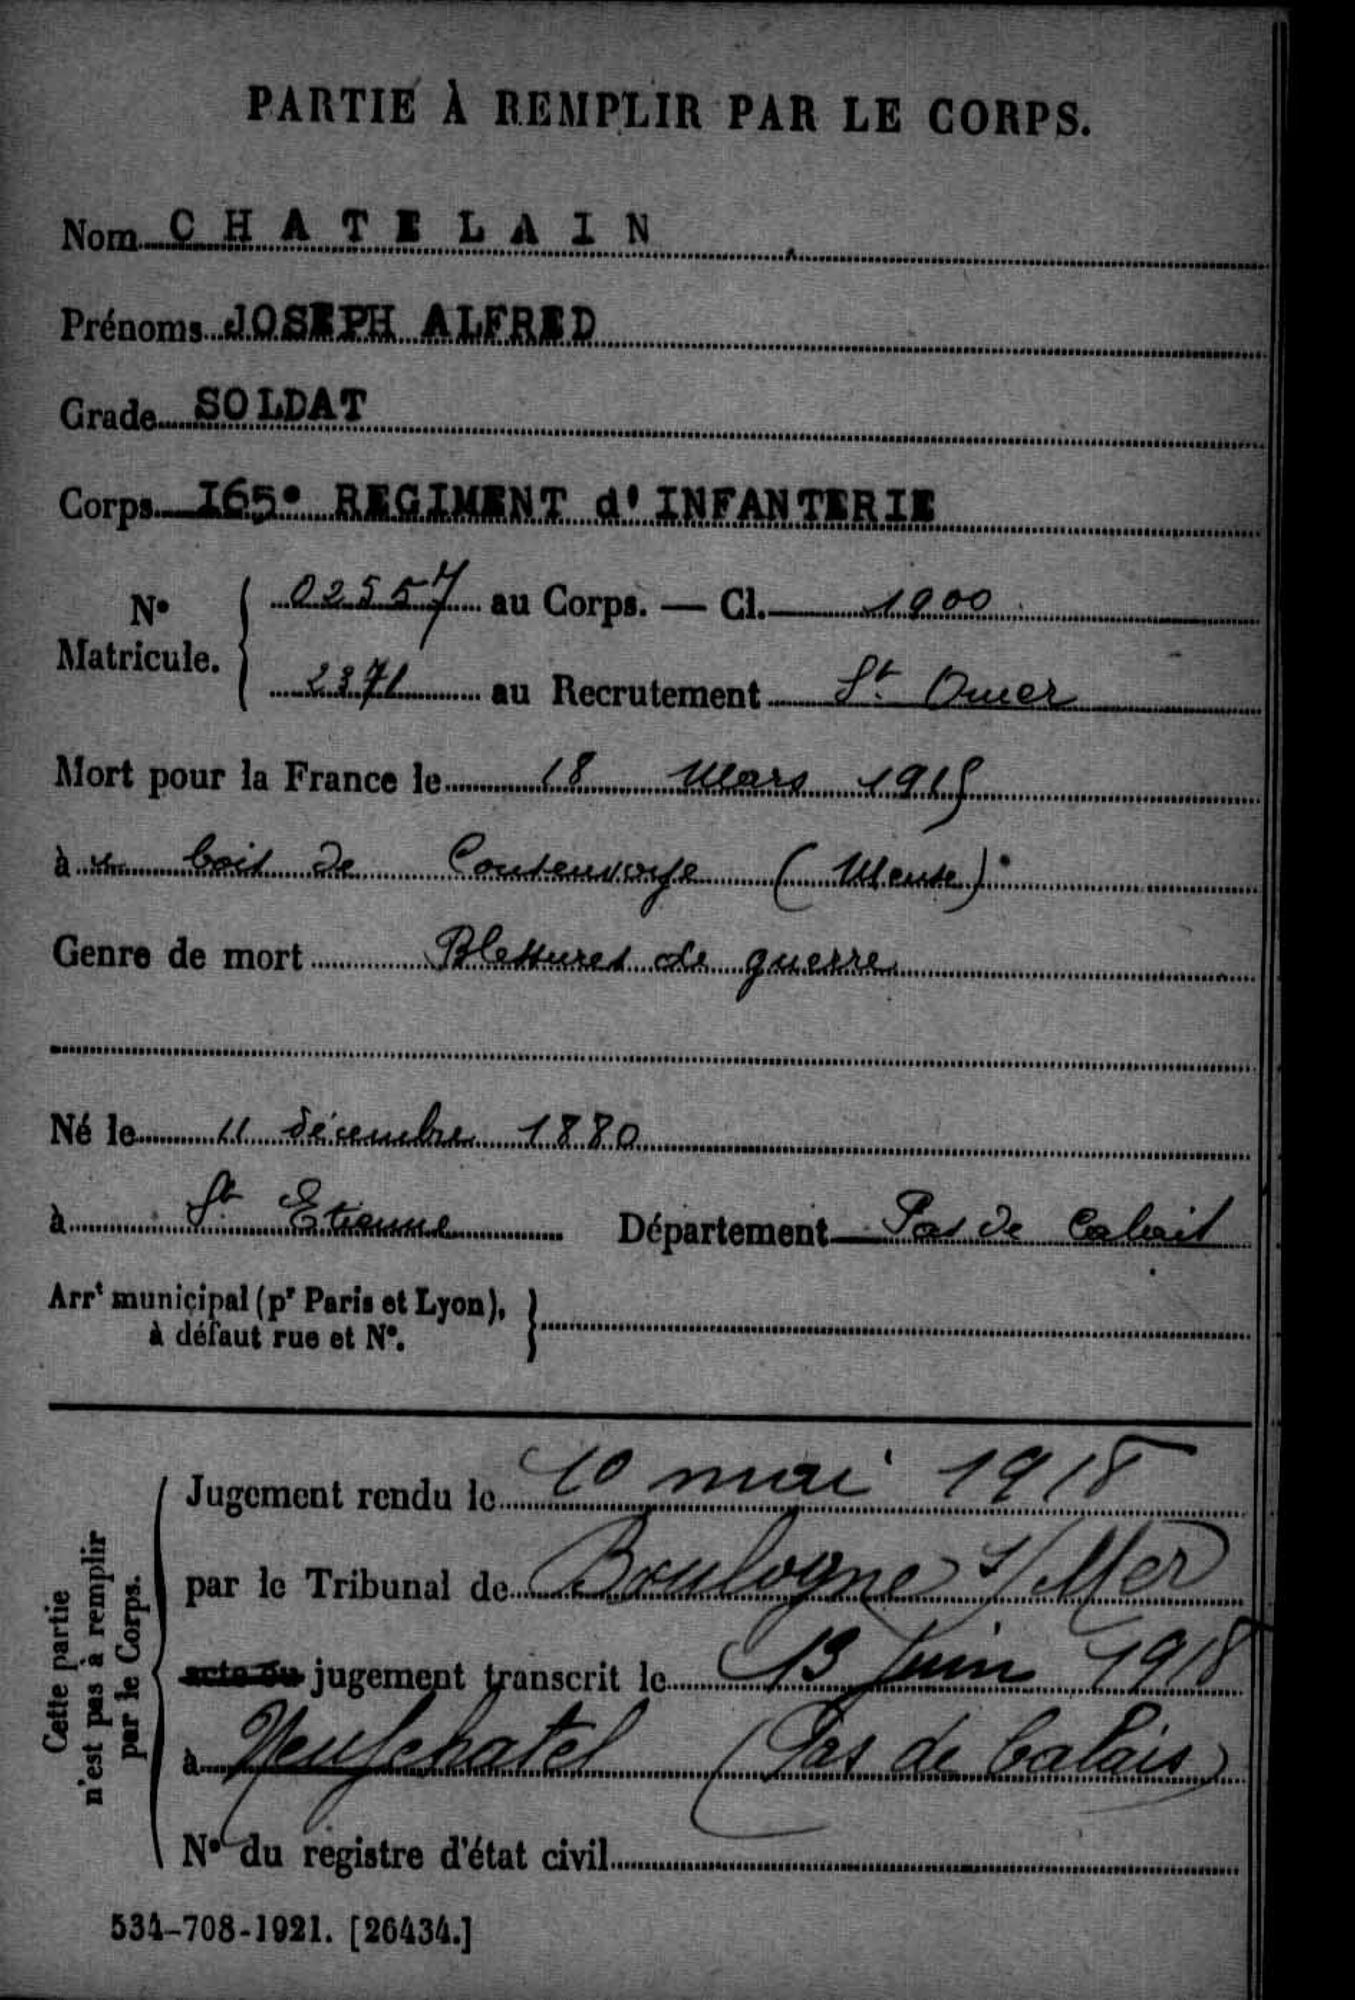 PARTIE À REMPLIR PAR LE CORPS.
Nom CHATELAIN
Prénoms JOSEPH ALFRED
Grade SOLDAT
Corps I65° REGIMENT d'INFANTERIE
N° Matricule. { 02557 au Corps. — Cl. 1900
2371 au Recrutement St. Omer
Mort pour la France le 18 Mars 1915
à bois de Consenvoye (Meuse)
Genre de mort Blessures de guerre
Né le 11 décembre 1880
à St Etienne Département Pas de Calais
Arrt municipal (pr Paris et Lyon), }
à défaut rue et N°.
Cette partie
n'est pas à remplir
par le Corps.
Jugement rendu le 10 mai 1918
par le Tribunal de Boulogne s/Mer
acte ou jugement transcrit le 13 Juin 1918
à Neufchatel (Pas de Calais)
N° du registre d'état civil
534-708-1921. [26434.]